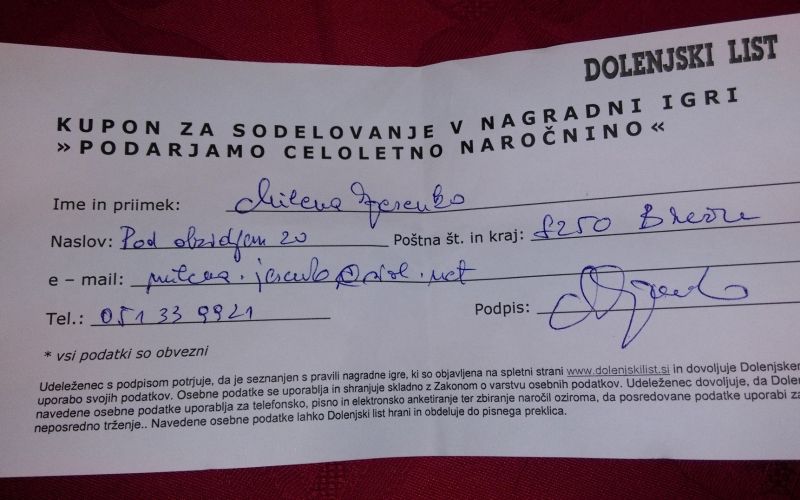 DOLENJSKI LIST
KUPON ZA SODELOVANJE V NAGRADNI IGRI
»PODARJAMO CELOLETNO NAROČNINO«
Ime in priimek: Milena Jesenko
Naslov: Pod obzidjem 20 Poštna št. in kraj: 8250 Brežice
e – mail: milena.jesenko@siol.net
Tel.: 051 33 9921 Podpis:
* vsi podatki so obvezni
Udeleženec s podpisom potrjuje, da je seznanjen s pravili nagradne igre, ki so objavljena na spletni strani www.dolenjskilist.si in dovoljuje Dolenjskem
uporabo svojih podatkov. Osebne podatke se uporablja in shranjuje skladno z Zakonom o varstvu osebnih podatkov. Udeleženec dovoljuje, da Dolen
navedene osebne podatke uporablja za telefonsko, pisno in elektronsko anketiranje ter zbiranje naročil oziroma, da posredovane podatke uporabi za
neposredno trženje.. Navedene osebne podatke lahko Dolenjski list hrani in obdeluje do pisnega preklica.